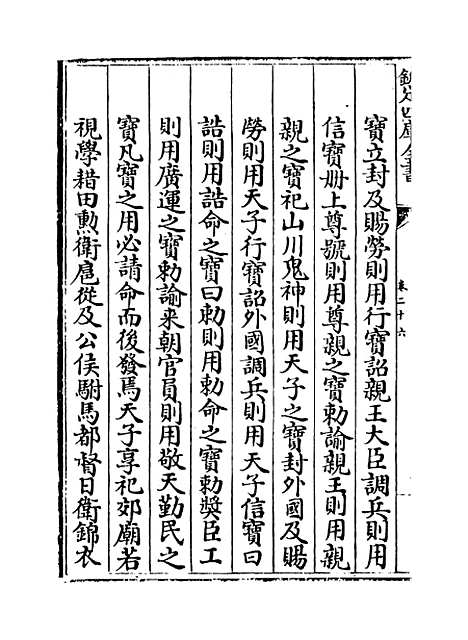 欽定四庫全書
卷二十六
寶立封及賜勞則用行寶詔親王大臣調兵則用
信寶册上尊號則用尊親之寶勅諭親王則用親
親之寶祀山川鬼神則用天子之寶封外國及賜
勞則用天子行寶詔外國調兵則用天子信寶曰
誥則用誥命之寶曰勅則用勅命之寶勅奬臣工
則用廣運之寶勅諭來朝官員則用敬天勤民之
寶凡寶之用必請命而後發焉天子享祀郊廟若
視學耤田勲衛扈從及公侯駙馬都督日衛錦衣